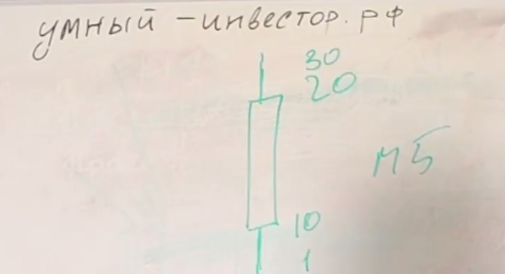 умный -инвестор.рф
30
20
М5
10
1